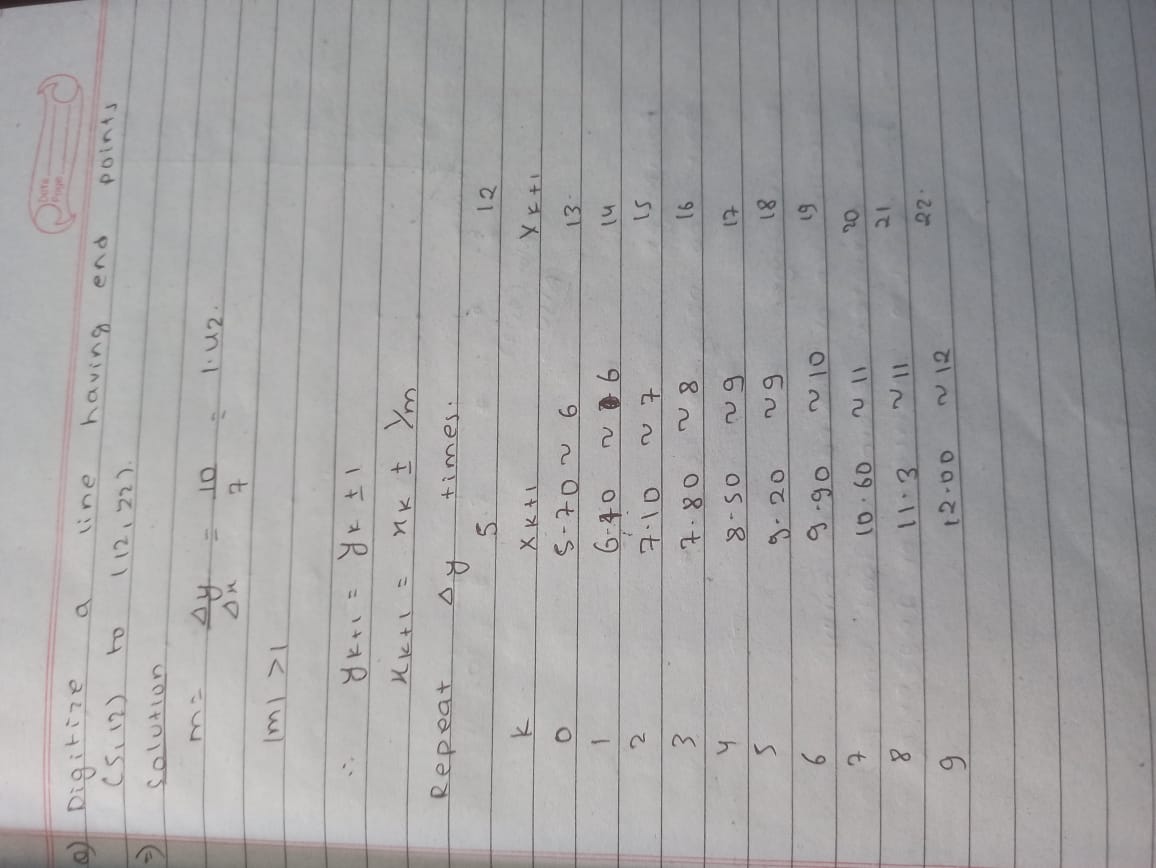 Date
Page
Q) Digitize a line having end points
(5,12) to (12,22).
=) Solution
m = Δy/Δx = 10/7 = 1.42.
|m| >1
∴ yk+1 = yk ± 1
xk+1 = xk ± 1/m
Repeat Δy times.
5 12
K xk+1 Yk+1
0 5.70 ~ 6 13.
1 6.40 ~ 6 14
2 7.10 ~ 7 15
3 7.80 ~ 8 16
4 8.50 ~ 9 17
5 9.20 ~ 9 18
6 9.90 ~ 10 19
7 10.60 ~ 11 20
8 11.3 ~ 11 21
9 12.00 ~ 12 22.